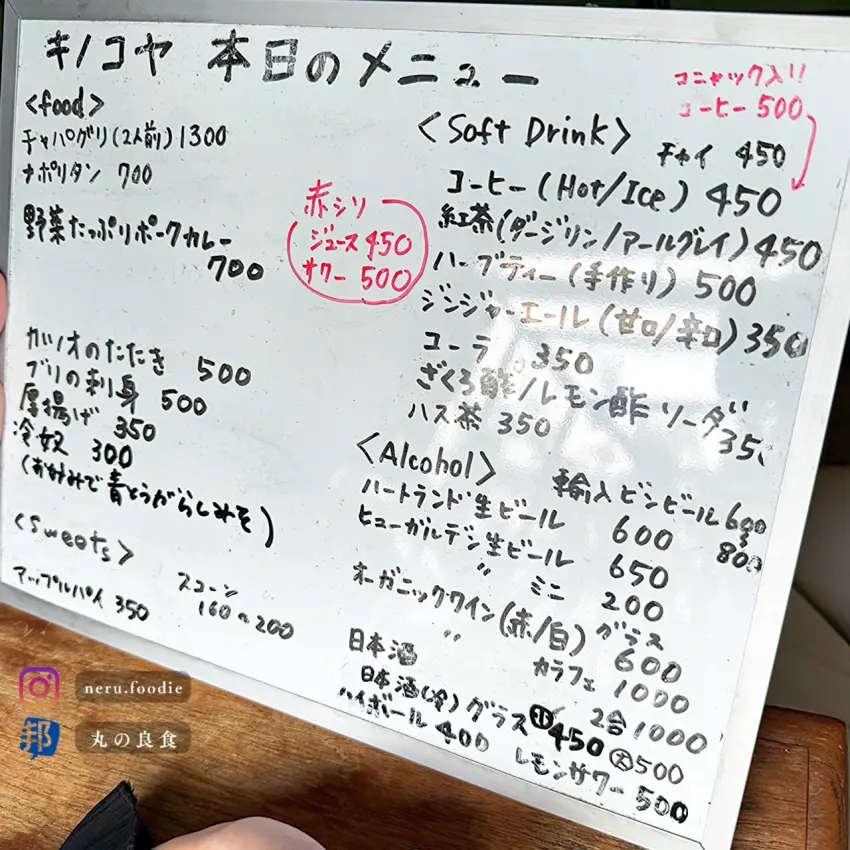 キノコヤ 本日のメニュー
<food>
チャパグリ(2人前) 1300
ナポリタン 700
野菜たっぷりポークカレー
700
赤シソ
ジュース 450
サワー 500
カツオのたたき 500
ブリの刺身 500
厚揚げ 350
冷奴 300
(お好みで青とうがらしみそ)
<Sweets>
アップルパイ 350
スコーン
160〜200
コニャック入!!
コーヒー 500
<Soft Drink>
チャイ 450
コーヒー(Hot/Ice) 450
紅茶(ダージリン/アールグレイ) 450
ハーブティー(手作り) 500
ジンジャーエール(甘口/辛口) 350
コーラ 350
ざくろ酢/レモン酢 ソーダ
ハス茶 350
<Alcohol>
輸入ビンビール 600
〜
800
ハートランド生ビール 600
ヒューガルデン生ビール 650
〃 ミニ 200
オーガニックワイン(赤/白) グラス
600
〃 カラフェ 1000
日本酒 2合 1000
日本酒(冷) グラス 小 450 大 500
ハイボール 400
レモンサワー 500
neru.foodie
邦 丸の良食